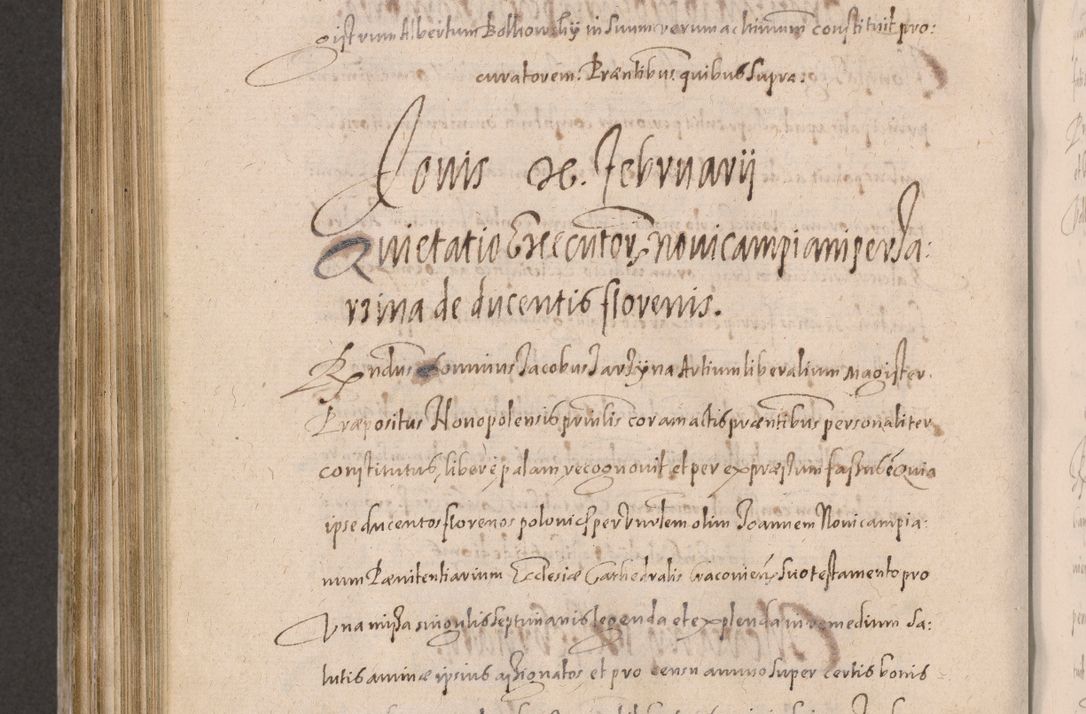 gistrum Albertum Bolhowsky in suum verum acltimum constituit pro:
curatorem. Præntibus quibus supra.
Jouis 26. Februarij
Quietatio Executor nouicampiani per Ja:
rzina de ducentis florenis.
Rndus Dominus Jacobus Jarzyna Artium liberalium Magister
Præpositus Nouopolensis prnlis coram actis præntibus personaliter
constitutus, libere palam recognouit et per expræssum fassus ē Quia
ipse ducentos florenos polonic per Vnrlem olim Joannem Nouicampia:
num Pænitentiarium Ecclesiæ Cathedralis Cracovien suo testamento pro
Vna missa singulis septimanis legenda et explenda in remedium sa:
lutis animæ ipsius assignatos et pro censu annuo super certis bonis